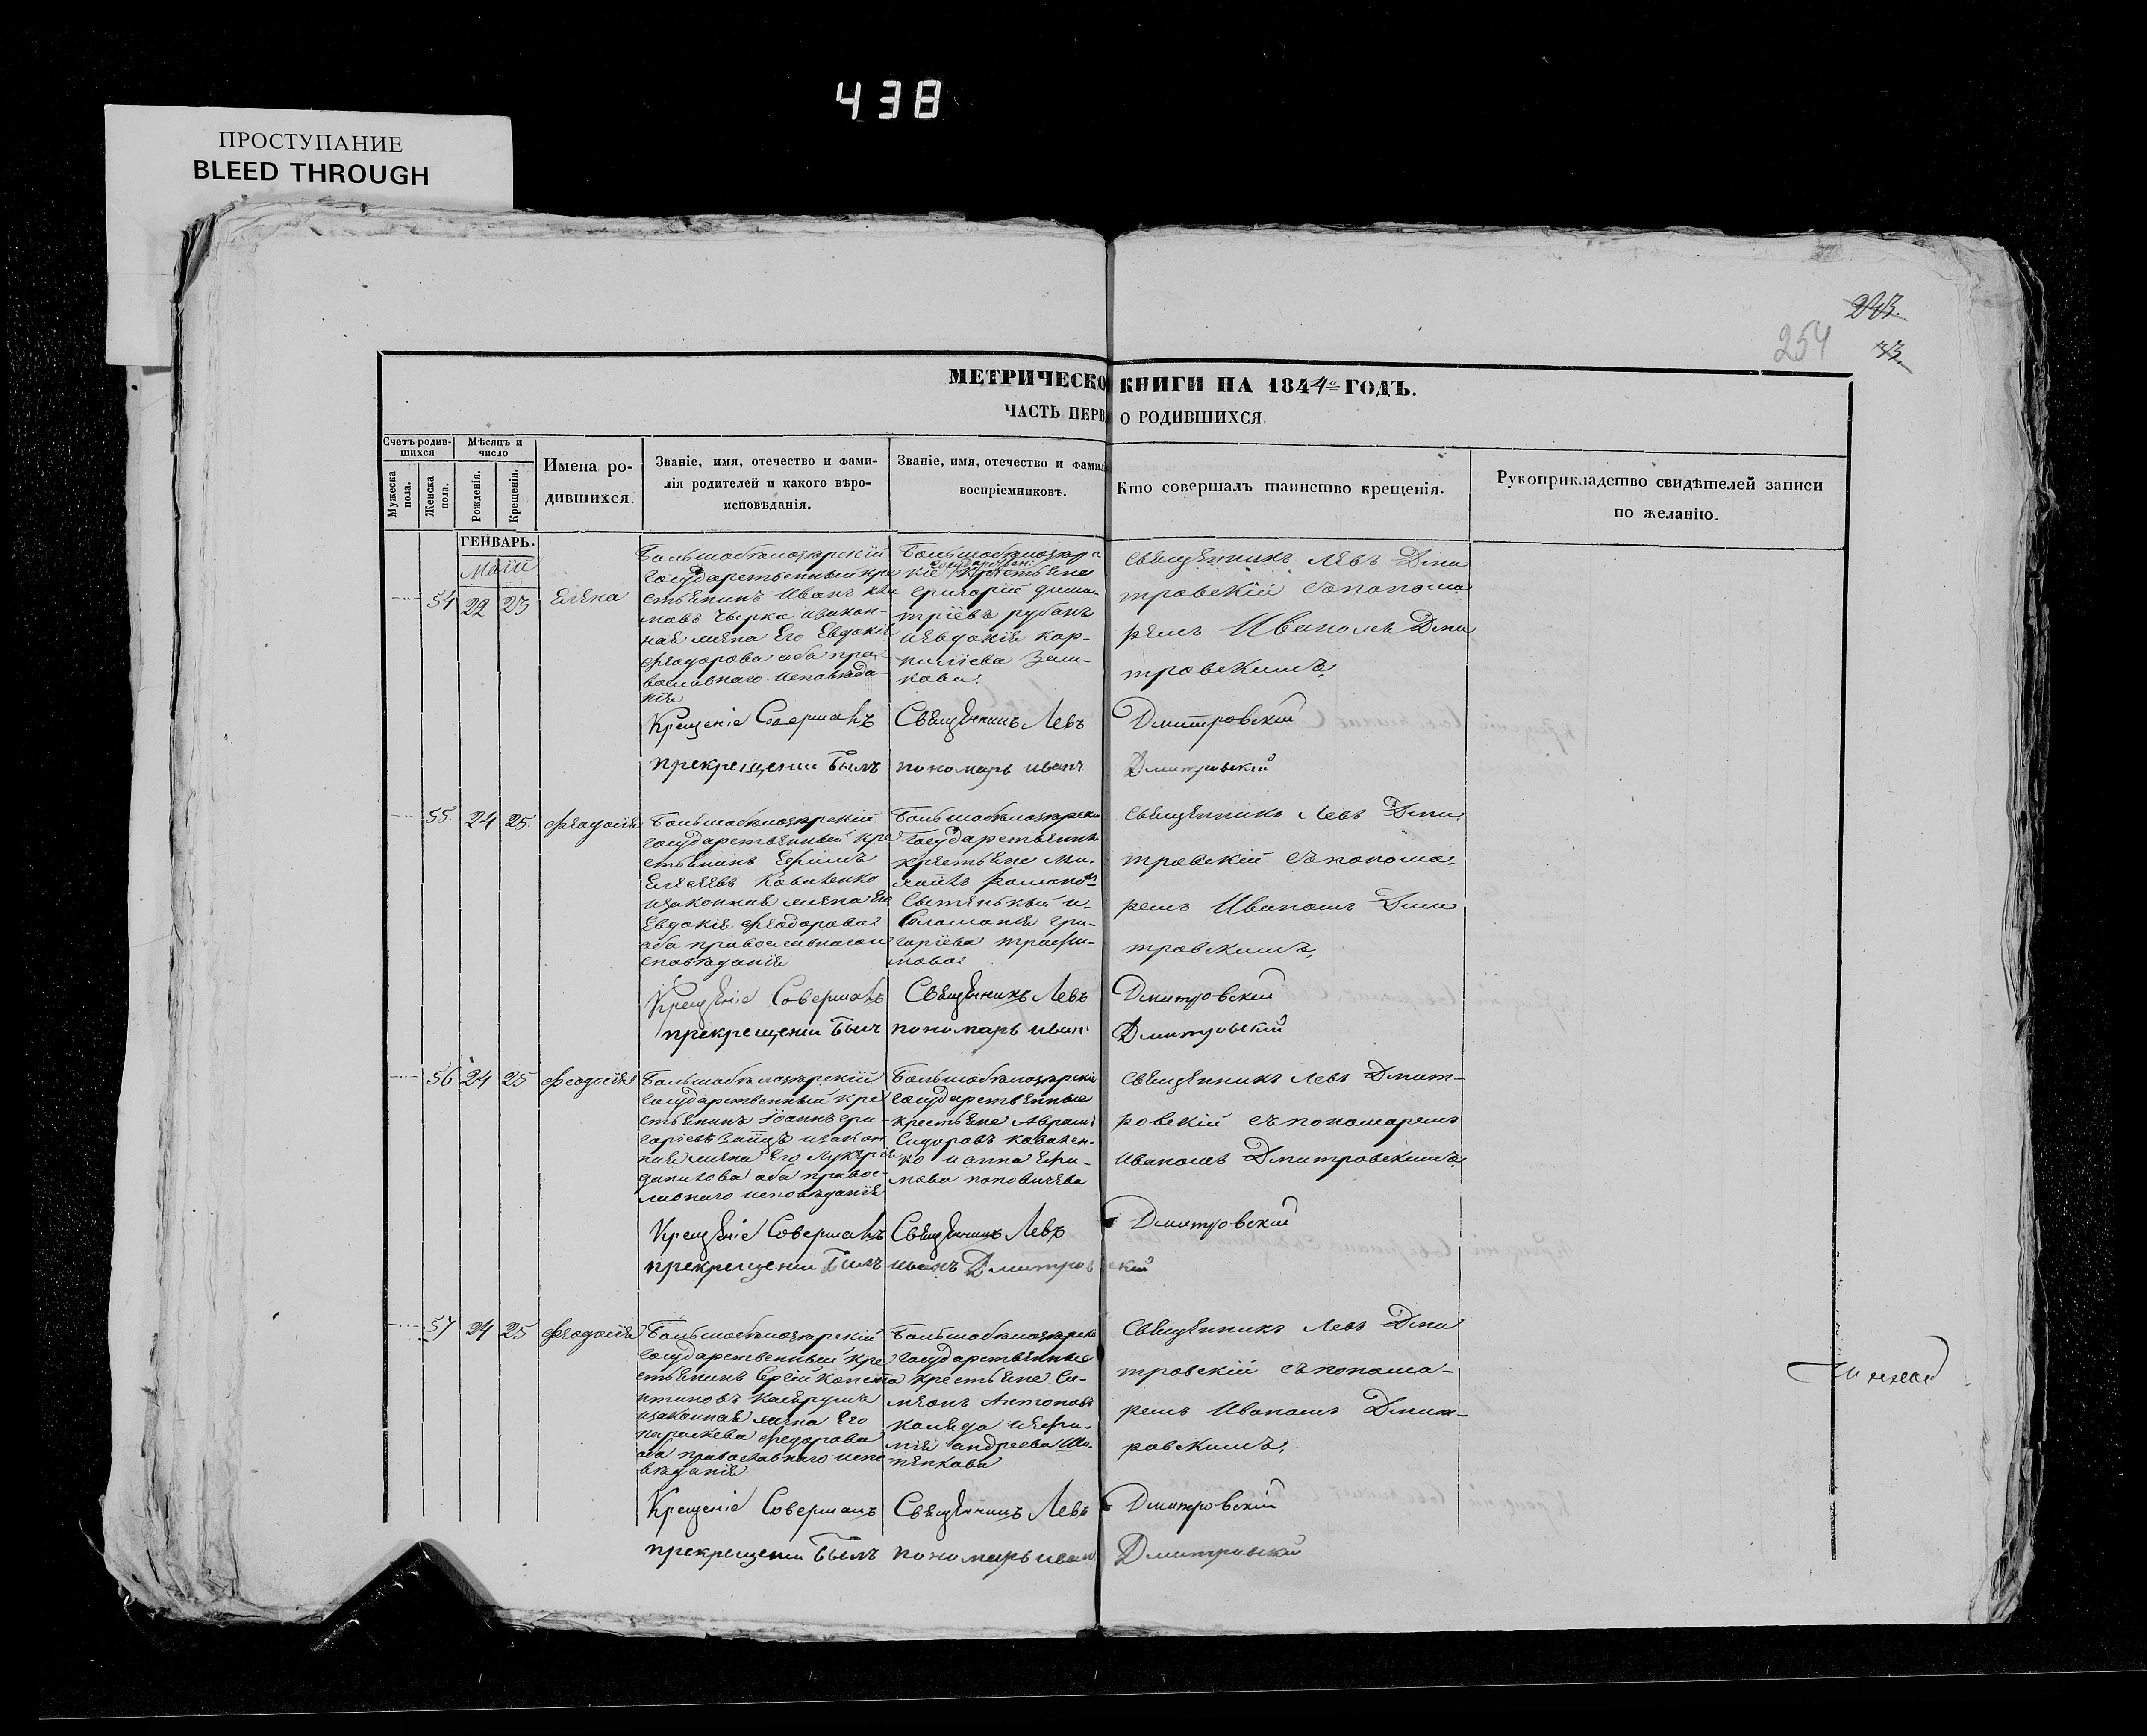 438
ПРОСТУПАНИЕ
BLEED THROUGH
243.
254
МЕТРИЧЕСКО КНИГИ НА 1844 ГОДЪ.
ЧАСТЬ ПЕРВ О РОДИВШИХСЯ.
Счетъ родив-
шихся
Мѣсяцъ и
число
Мужеска
пола.
Женска
пола.
Рожденія.
Крещенія.
Имена ро-
дившихся.
Званіе, имя, отечество и фами-
лія родителей и какого вѣро-
исповѣданія.
Званіе, имя, отечество и фамил
воспріемниковъ.
Кто совершалъ таинство крещенія.
Рукоприкладство свидѣтелей записи
по желанію.
ГЕНВАРЬ.
Маій
54 22 23 Елена
Большобѣлозерскій
Государственный кре
стьянинъ Иванъ
Чирка изакон-
ная жена Его Евдокія
Феодорова оба пра-
вославнаго исповѣда-
нія
Большобѣлозер
кіе крестьяне
Григорій Дими-
тріевъ Рубанъ
иЕвдокія Кор-
нилиева
Священникъ Левъ Дми
тровскій съпонома
ремъ Иваномъ Дми
тровскимъ.
Крещеніе Совершалъ Священникъ Левъ Дмитровскій
прекрещении былъ пономарь иванъ Дмитровский
55. 24 25. Феодосія
Большобѣлозерскій
Государственный кре
стьянинъ Ефимъ
Елисеевъ Коваленко
изаконная жена Его
Евдокія Феодорова
оба православнагои
сповѣданія
Большобѣлозерски
Государственные
крестьяне Ми-
хаилъ Романовъ
и
Соломонія Гри-
горіева Трофи-
мова
Священникъ Левъ Дми
тровскій съпонома-
ремъ Иваномъ Дми
тровскимъ,
Крещеніе Совершалъ Священникъ Левъ Дмитровский
прекрещении былъ пономарь иван Дмитровский
56 24 25 Феодосія
Большобѣлозерскій
Государственный кре
стьянинъ Іоаннъ Гри-
горіевъ Заицъ изакон
ная жена Его Лукерія
Данилова оба правос-
лавнаго исповѣданія
Большобѣлозерскіе
Государственные
крестьяне Аврамъ
Сидоровъ Ковален-
ко ианна Ефи-
мова Поповичева
Священникъ Левъ Дмит-
ровскій съпономаремъ
Иваномъ Дмитровскимъ.
Крещеніе Совершалъ Священникъ Левъ Дмитровскій
прекрещении былъ иванъ Дмитровский
57 24 25 Феодосія
Большобѣлозерскій
Государственный кре
стьянинъ Сргій Конста
нтиновъ
изаконная жена Его
параскева Федорова
оба православнаго испо
вѣданія
Большобѣлозерск
Государственные
крестьяне Си-
меонъ Антоновъ
Коляда иЕфи-
мія Андреева
Священникъ Левъ Дми
тровскій съпонома-
ремъ Иваномъ Дмит-
ровскимъ.
Крещеніе Совершалъ Священникъ Левъ Дмитровскій
прекрещении былъ пономарь иван Дмитровский